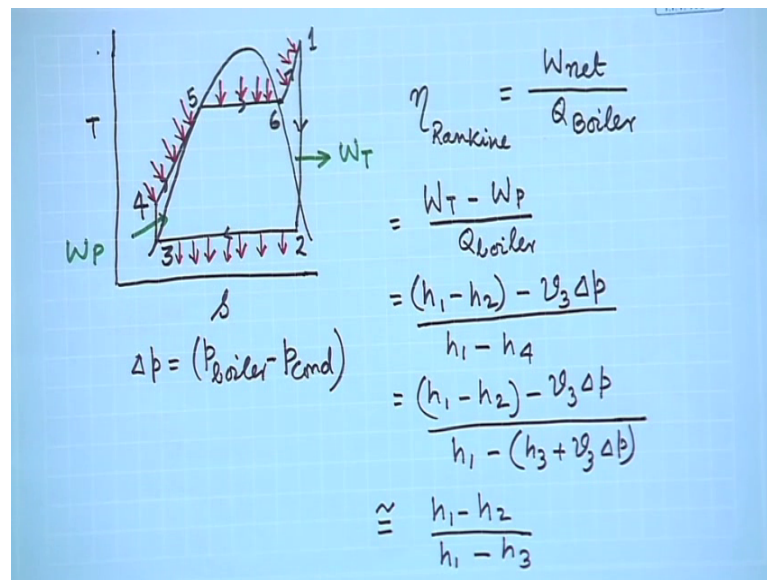 1
5
T
6
W_T
4
W_P
3
2
s
Δp = (P_boiler - P_cond)
η_Rankine = W_net / Q_Boiler
= (W_T - W_P) / Q_boiler
= ((h_1 - h_2) - v_3 Δp) / (h_1 - h_4)
= ((h_1 - h_2) - v_3 Δp) / (h_1 - (h_3 + v_3 Δp))
≅ (h_1 - h_2) / (h_1 - h_3)